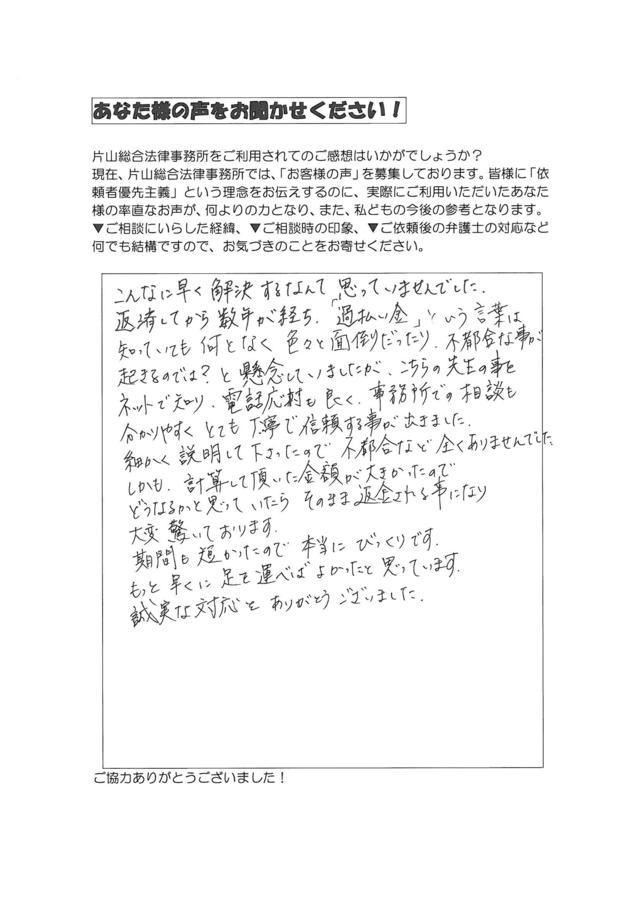 あなた様の声をお聞かせください！
片山総合法律事務所をご利用されてのご感想はいかがでしょうか？
現在、片山総合法律事務所では、「お客様の声」を募集しております。皆様に「依
頼者優先主義」という理念をお伝えするのに、実際にご利用いただいたあなた
様の率直なお声が、何よりの力となり、また、私どもの今後の参考となります。
▼ご相談にいらした経緯、▼ご相談時の印象、▼ご依頼後の弁護士の対応など
何でも結構ですので、お気づきのことをお寄せください。
こんなに早く解決するなんて思っていませんでした。
返済してから数年が経ち、「過払い金」という言葉は
知っていても何となく色々と面倒だったり、不都合な事が
起きるのでは？と懸念していましたが、こちらの先生の事を
ネットで知り、電話応対も良く、事務所での相談も
分かりやすくとても丁寧で信頼する事が出きました。
細かく説明して下さったので不都合など全くありませんでした
しかも、計算して頂いた金額が大きかったので
どうなるかと思っていたらそのまま返金される事になり
大変驚いております。
期間も短かったので本当にびっくりです。
もっと早くに足を運べばよかったと思っています。
誠実な対応をありがとうございました。
ご協力ありがとうございました！